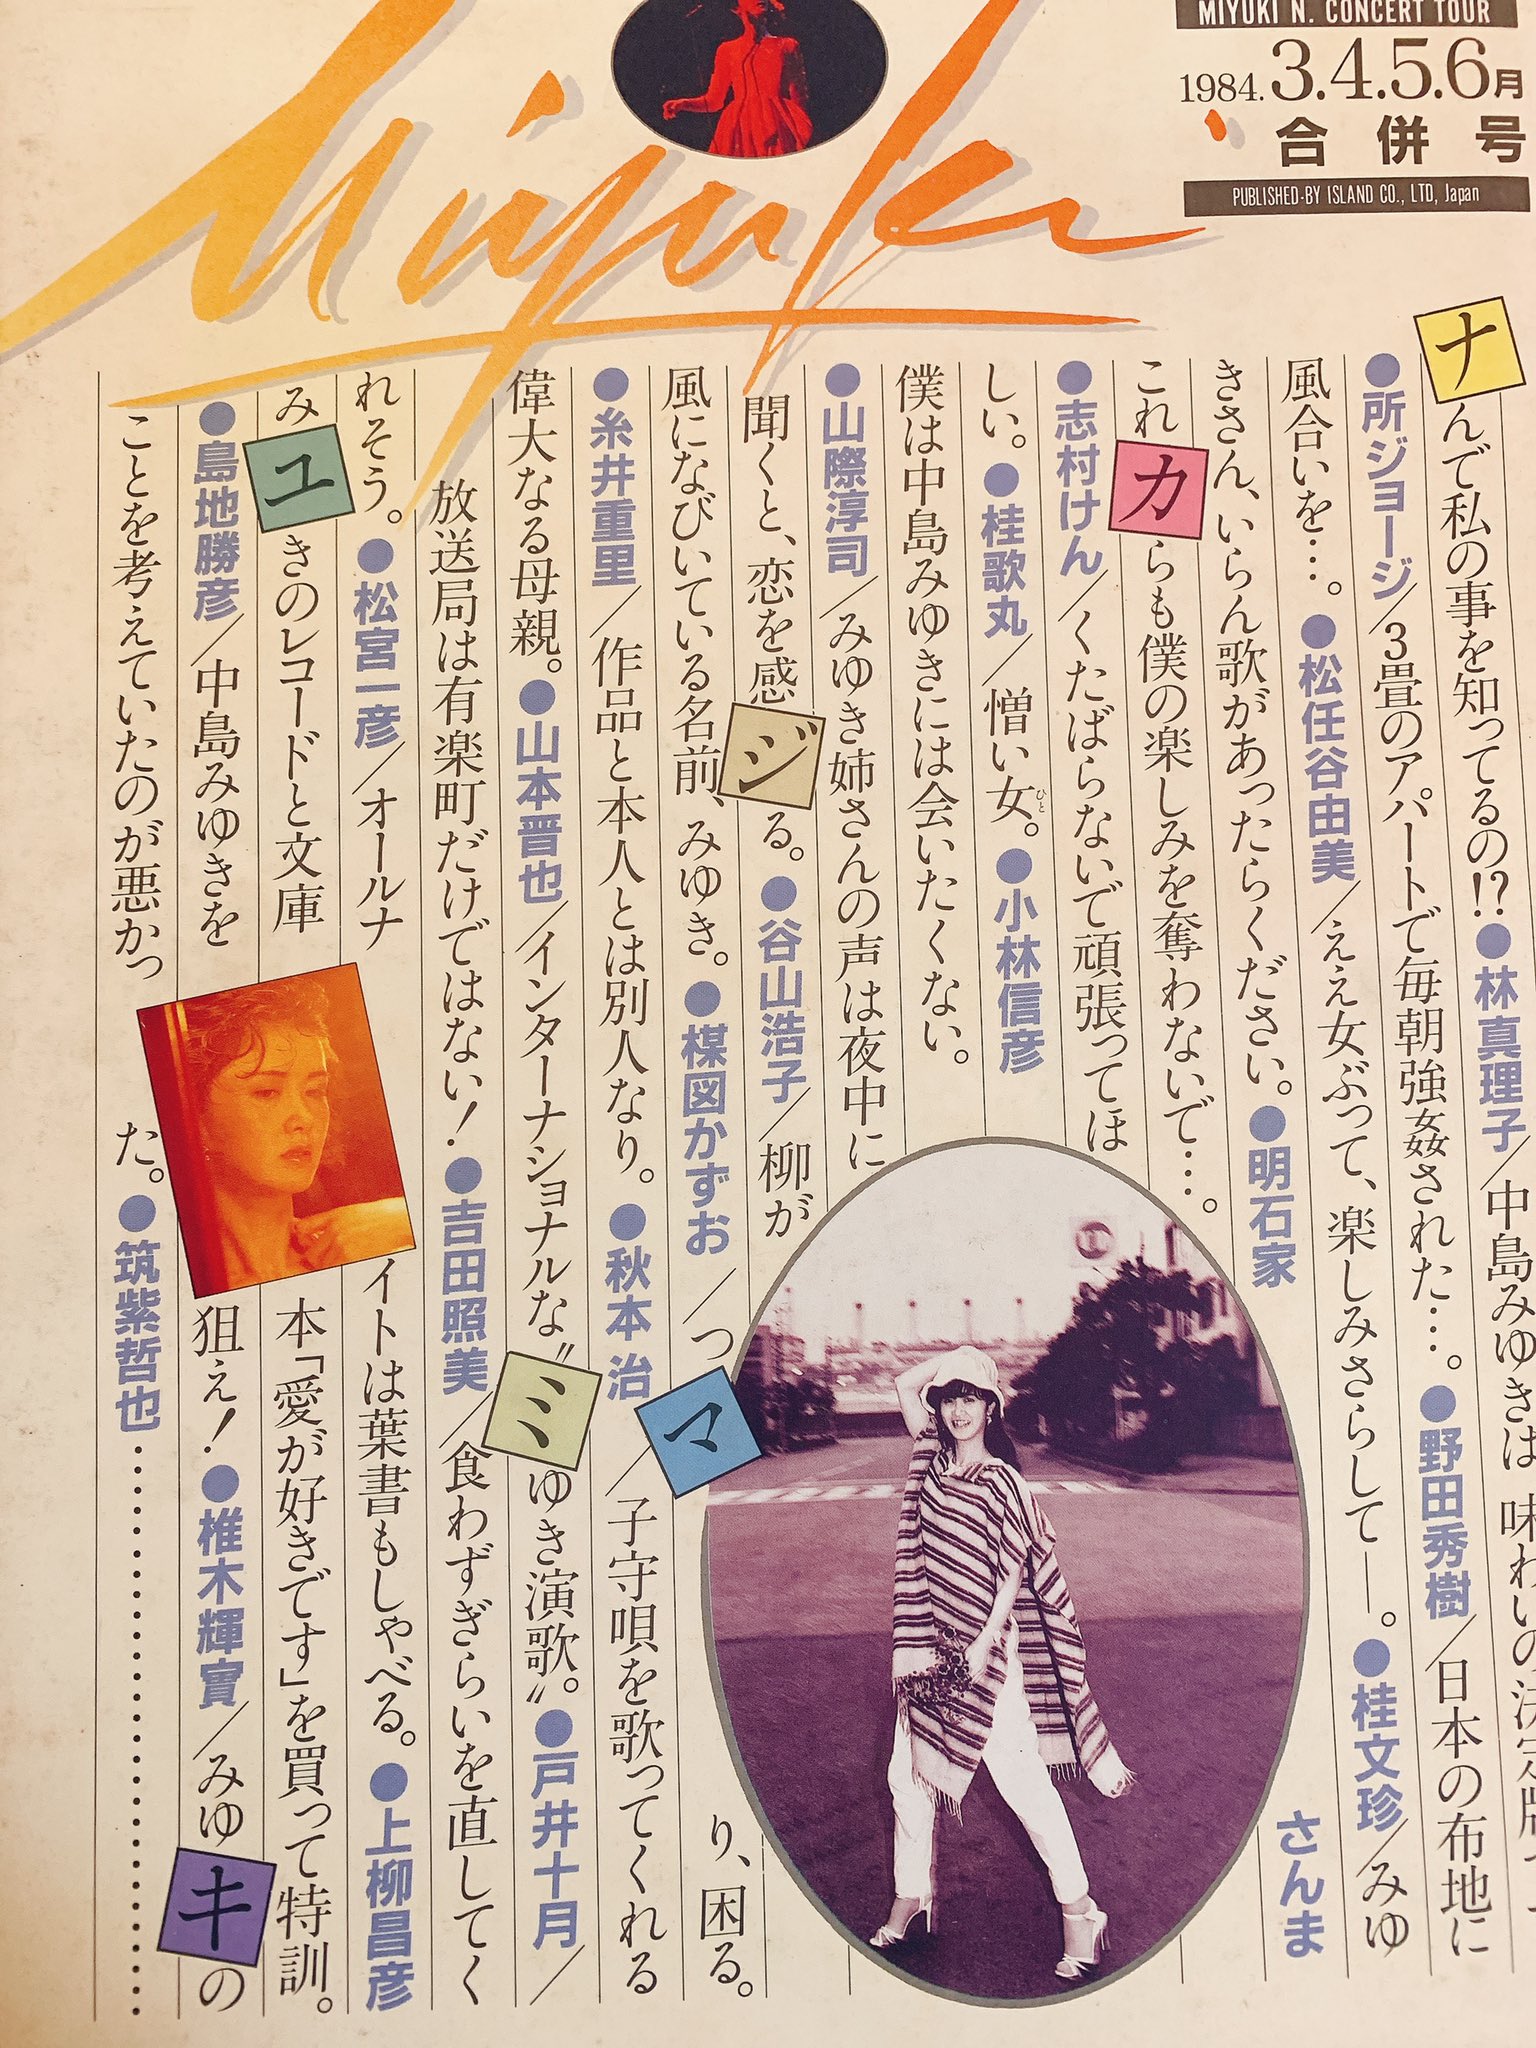 MIYUKI N. CONCERT TOUR
1984. 3.4.5.6月
合併号
PUBLISHED-BY ISLAND CO., LTD, Japan
Miyuki
ナんで私の事を知ってるの!?●林真理子／中島みゆきは味わいの決定版
●所ジョージ／3畳のアパートで毎朝強姦された…。●野田秀樹／日本の布地に
風合いを…。●松任谷由美／ええ女ぶって、楽しみさらして―。●桂文珍／みゆ
きさん、いらん歌があったらください。●明石家さんま
これカらも僕の楽しみを奪わないで…。
●志村けん／くたばらないで頑張ってほ
しい。●桂歌丸／憎い女（ひと）。●小林信彦
僕は中島みゆきには会いたくない。
●山際淳司／みゆき姉さんの声は夜中に
聞くと、恋を感ジる。●谷山浩子／柳が
風になびいている名前、みゆき。●楳図かずお／つマり、困る。
●糸井重里／作品と本人とは別人なり。●秋本治／子守唄を歌ってくれる
偉大なる母親。●山本晋也／インターナショナルな〝ミゆき演歌。〟●戸井十月／
放送局は有楽町だけではない！●吉田照美／食わずぎらいを直してく
れそう。●松宮一彦／オールナイトは葉書もしゃべる。●上柳昌彦
みユきのレコードと文庫本「愛が好きです」を買って特訓。
●島地勝彦／中島みゆきを狙え！●椎木輝實／みゆキの
ことを考えていたのが悪かった。●筑紫哲也……………………